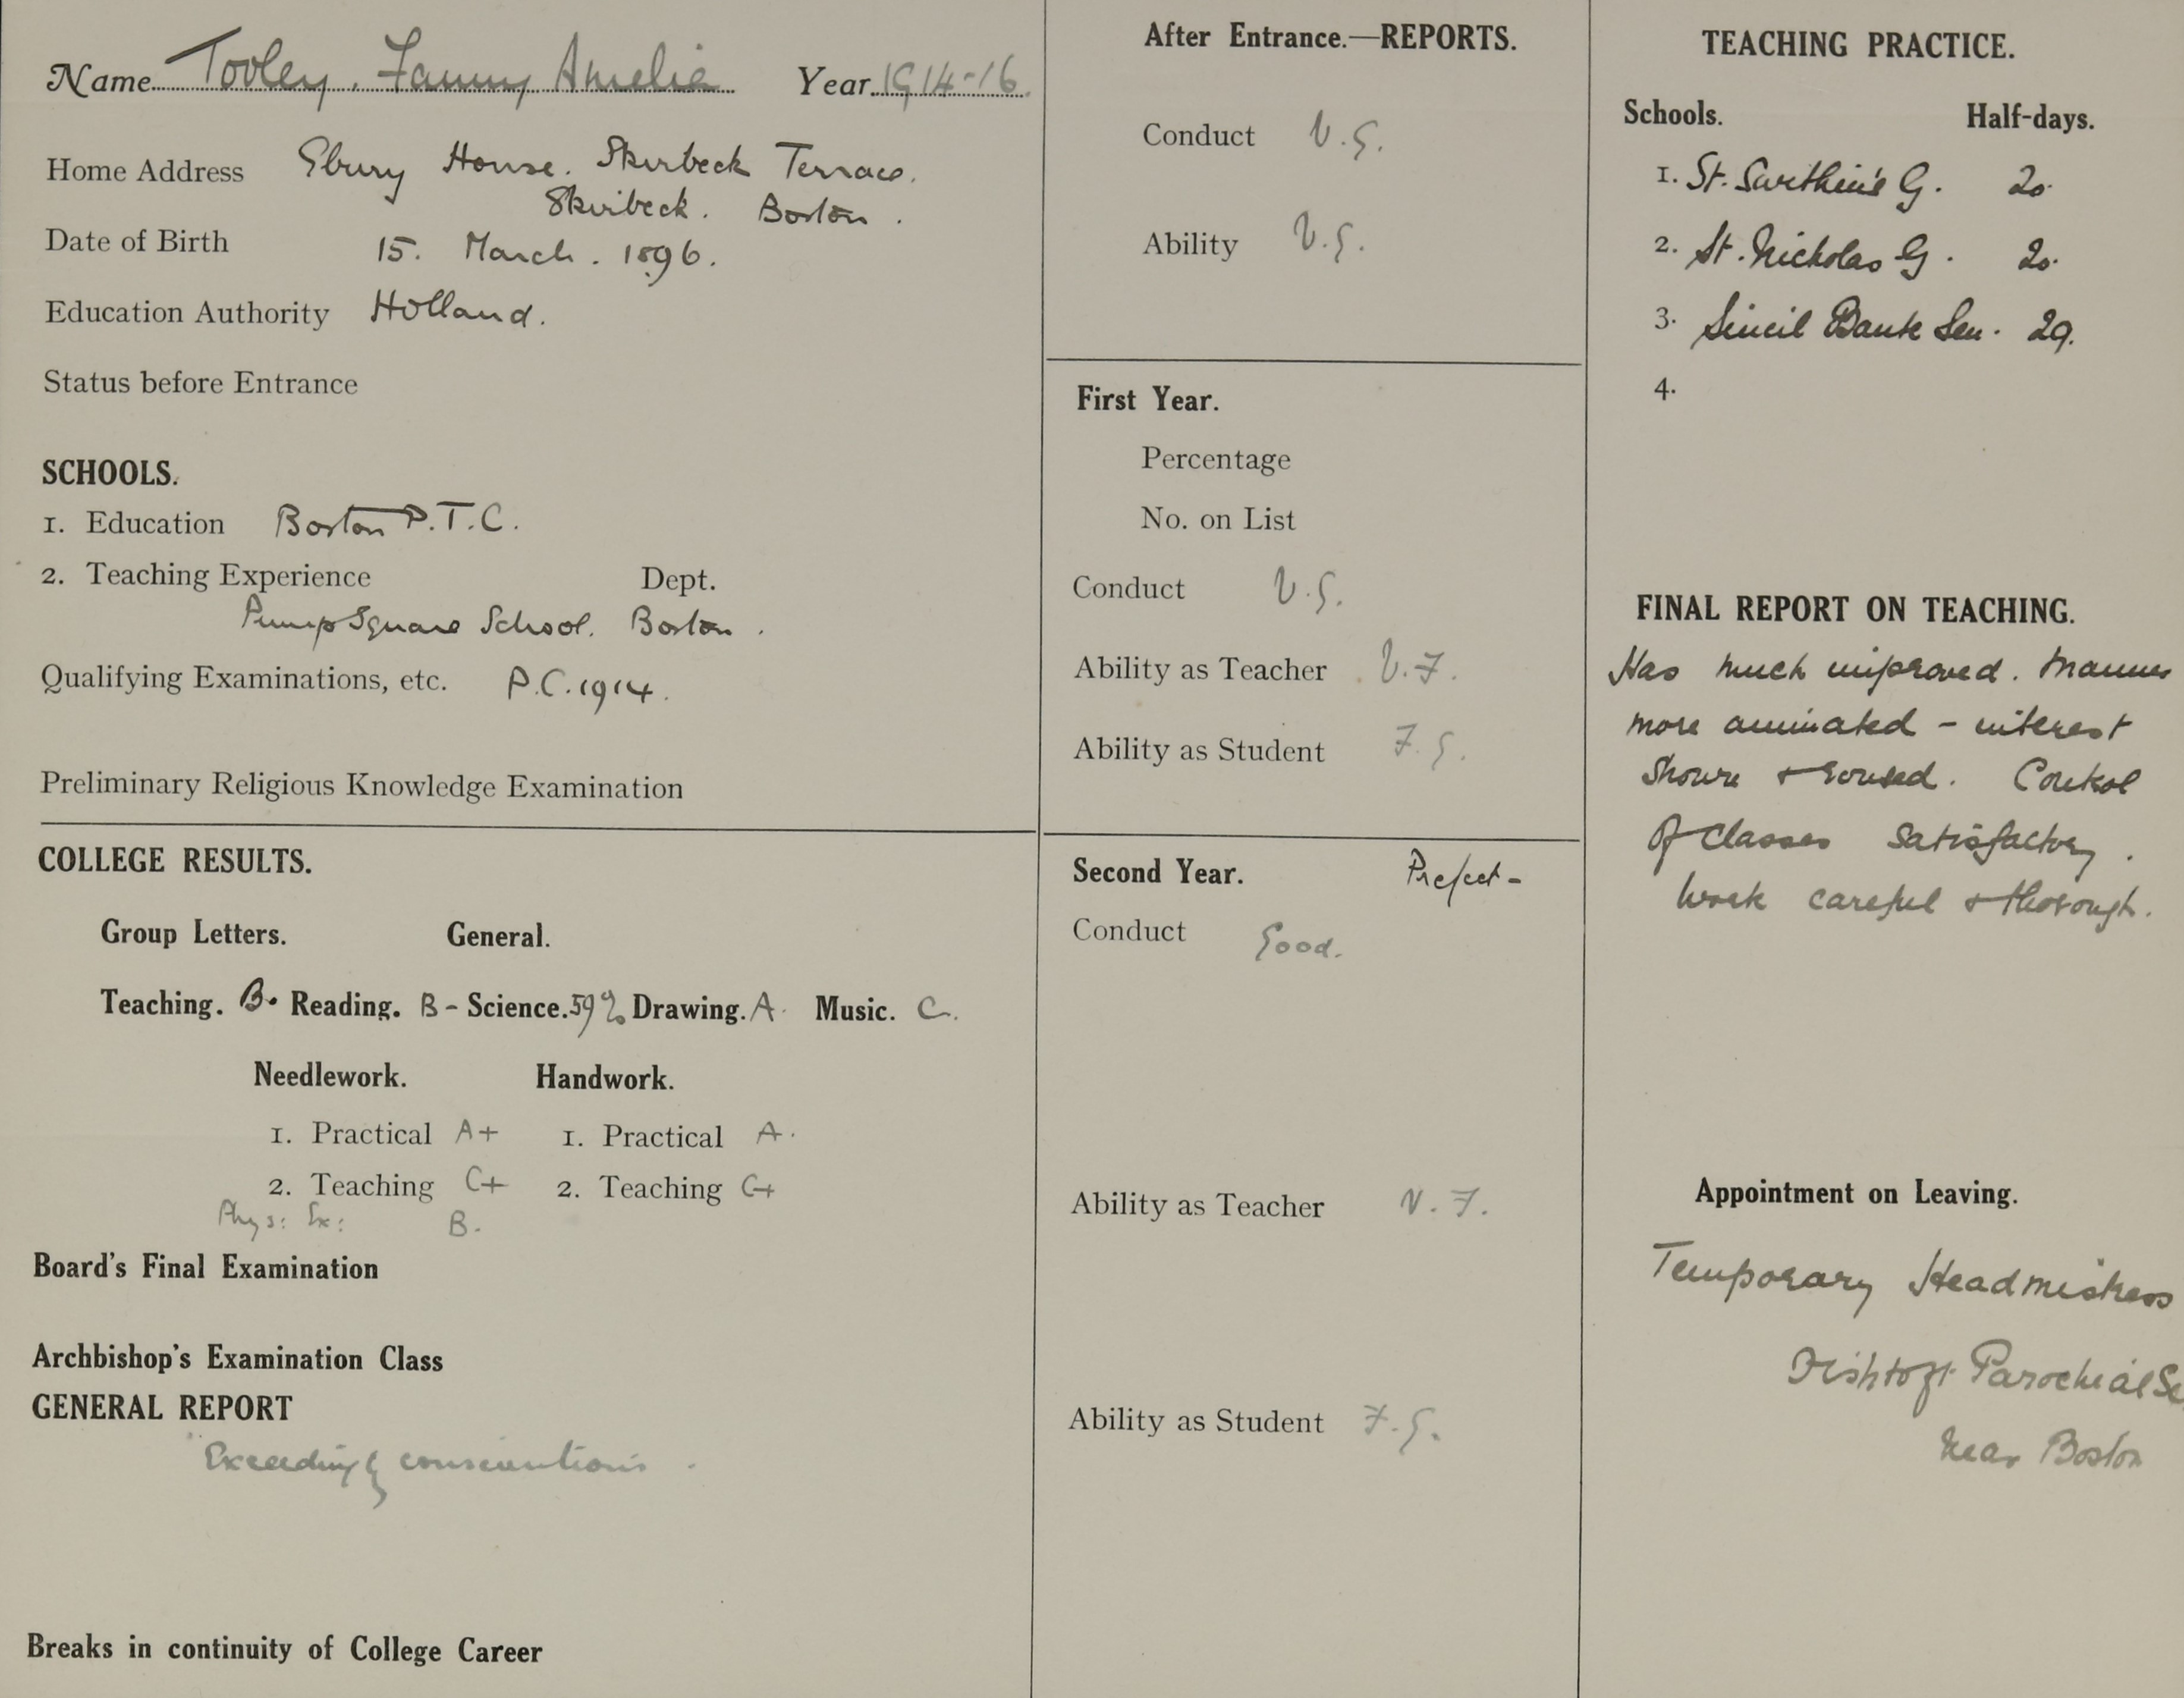 Name Tooley, Fanny Amelia Year 1914-16.
Home Address Ebury House. Skirbeck Terrace.
Skirbeck. Boston.
Date of Birth 15. March. 1896.
Education Authority Holland.
Status before Entrance
SCHOOLS.
1. Education Boston P.T.C.
2. Teaching Experience Dept.
Pump Square School. Boston.
Qualifying Examinations, etc. P.C. 1914.
Preliminary Religious Knowledge Examination
COLLEGE RESULTS.
Group Letters. General.
Teaching. B. Reading. B - Science. 59% Drawing. A. Music. C.
Needlework. Handwork.
1. Practical A+ 1. Practical A.
2. Teaching C+ 2. Teaching C+
Phys: Ex: B.
Board's Final Examination
Archbishop's Examination Class
GENERAL REPORT
Exceedingly conscientious.
Breaks in continuity of College Career
After Entrance.—REPORTS.
Conduct V.G.
Ability V.G.
First Year.
Percentage
No. on List
Conduct V.G.
Ability as Teacher V.F.
Ability as Student F.G.
Second Year. Prefect -
Conduct Good.
Ability as Teacher V.F.
Ability as Student F.G.
TEACHING PRACTICE.
Schools. Half-days.
1. St. Swithin's G. 20.
2. St. Nicholas G. 20.
3. Sincil Bank Sen. 29.
4.
FINAL REPORT ON TEACHING.
Has much improved. Manner
more animated - interest
shown & roused. Control
of classes satisfactory.
Work careful & thorough.
Appointment on Leaving.
Temporary Headmistress
Fishtoft Parochial Sc
near Boston